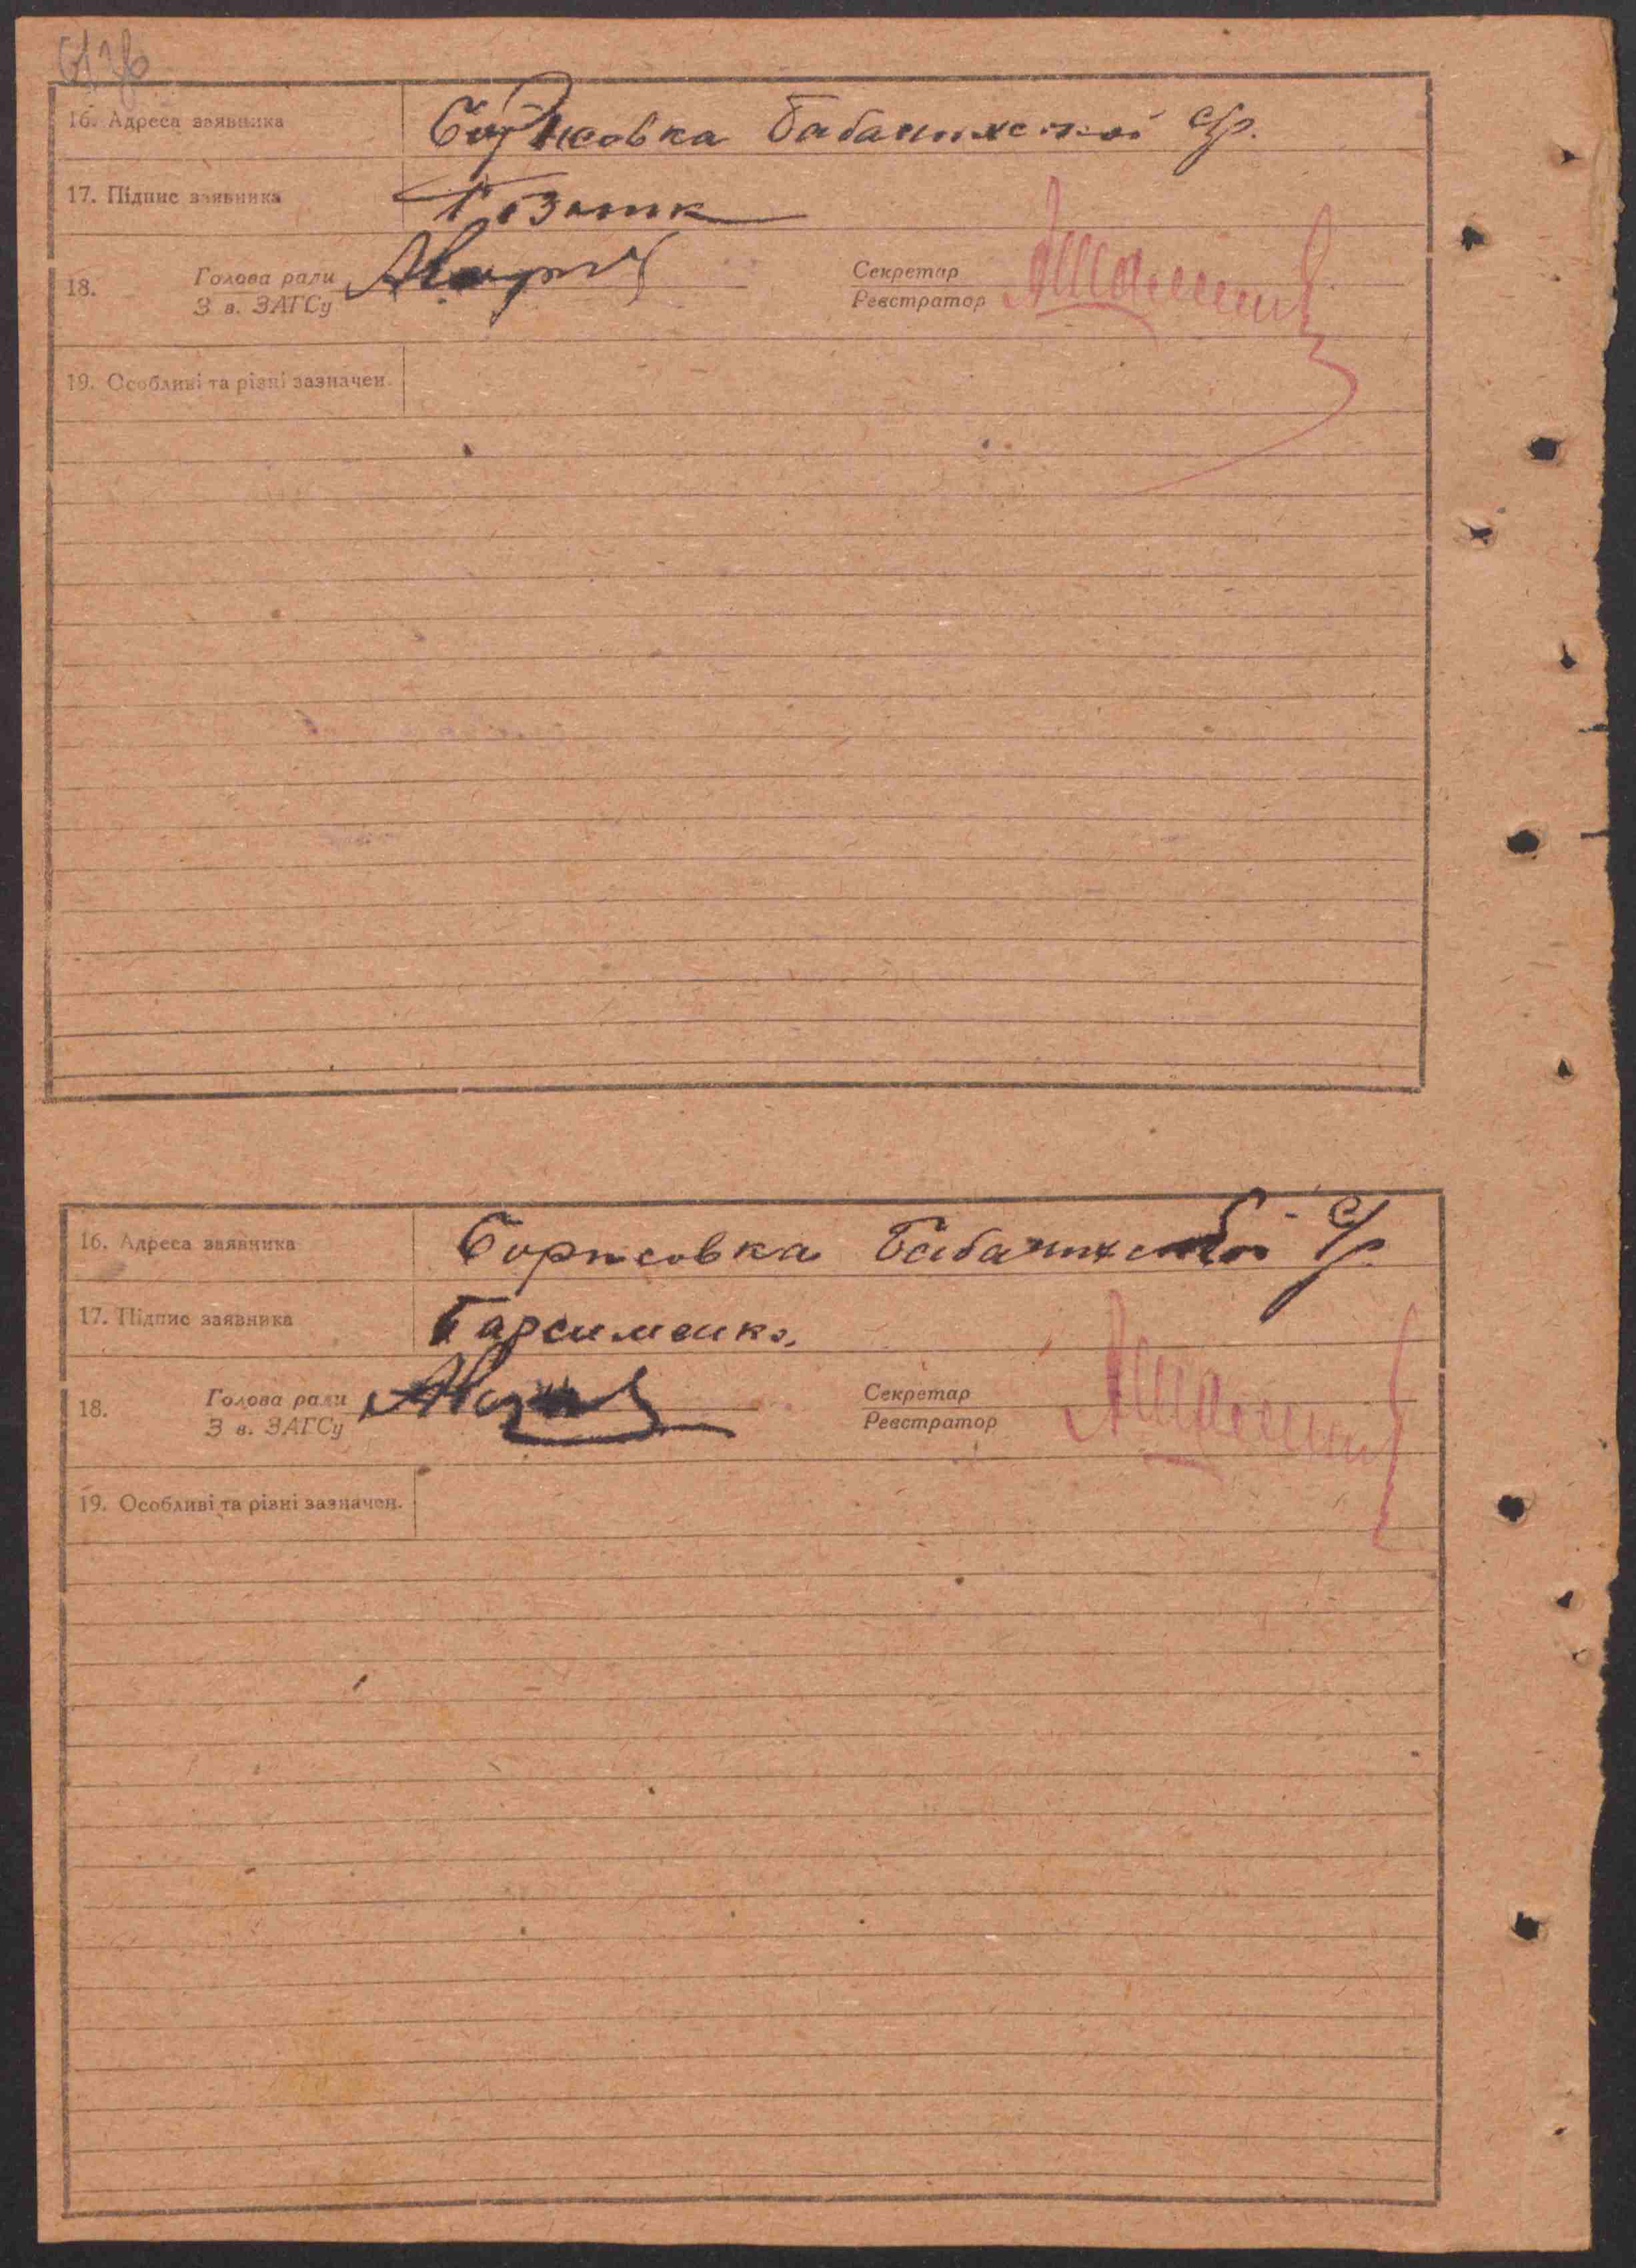 16. Адреса заявника Борисовка Бабанинской с/р.
17. Підпис заявника
18. Голова ради Секретар
З в. ЗАГСу Реєстратор
19. Особливі та різні зазначен.
16. Адреса заявника Борисовка Бабанинской с/р.
17. Підпис заявника Гарсименко
18. Голова ради Секретар
З в. ЗАГСу Реєстратор
19. Особливі та різні зазначен.